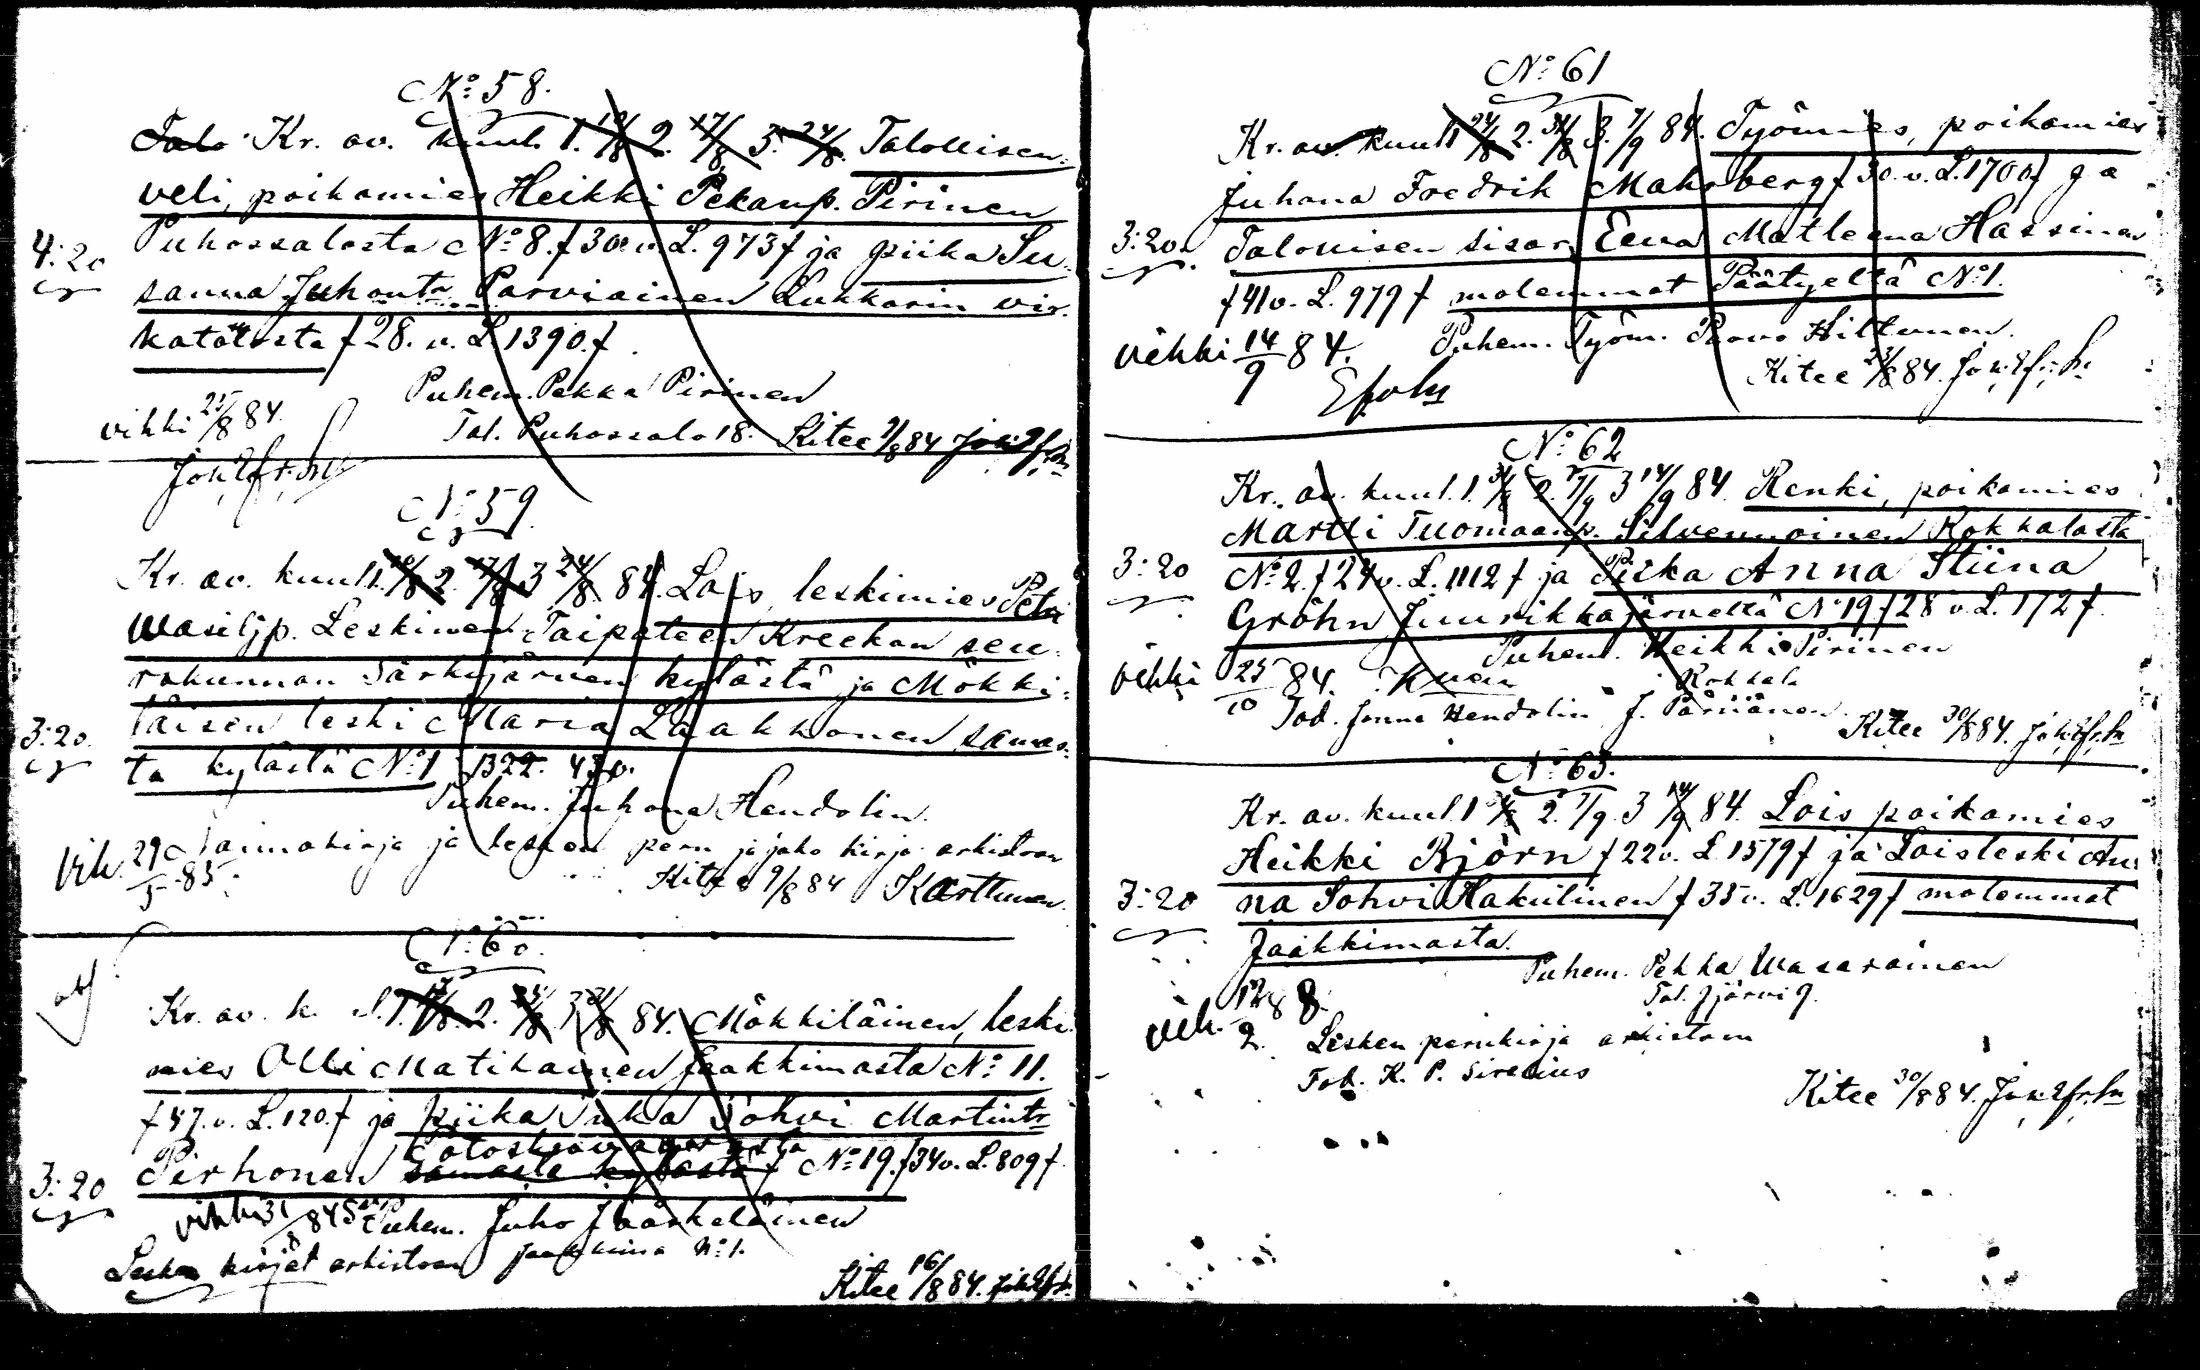 No: 58.
Talo Kr. av. kuul. 1. 10/8 2. 17/8 3. 24/8. Talollisen
veli, poikamies Heikki Pekanp. Pirinen
Puhossalosta No 8. f 30. v. L. 973 f ja piika Su-
4:20
sanna Juhontr Parviainen Lukkarin vir-
katalosta f 28. v. L 1390. f.
Puhem. Pekka Pirinen
vihki 25/8 84.
Tal. Puhossalo 18. Kitee 9/8 84
No: 59.
Kr. av. kuul 1. 10/8 2. 17/8 3 24/8. 84. Lois, leskimies Petri
Wasiljp. Leskinen Taipaleen Kreekan seu-
rakunnan Särkijärven kylästä ja Mökki-
läisen leski Maria Laakkonen samas-
3:20.
ta kylästä No 1 1322. 43v.
Puhem. Juhana Hendolin.
Lainakirja ja lesken peru ja jako kirja arkistoon
vih. 29/5 85.
Kitee 9/8 84 Karttunen.
No: 60.
Kr. av. k. 1. 17/8. 2. 24/8. 3 31/8 84. Mökkiläinen, leski-
mies Olli Matikainen Jaakkimasta No: 11.
f 47. v. L. 120. f ja piika Inka Sohvi Martintr
Potoskavaarasta
Pirhonen samasta kylästä f No 19. f 34v. L. 809 f.
3:20
vihki 31/8 84 Puhem. Juho Jääskeläinen
Lesken kirjat arkistoon Jaakkima No 1.
Kitee 16/8 84.
No: 61
Kr. av. kuul 1 24/8 2. 31/8 3. 7/9 84. Työmies, poikamies
Juhana Fredrik Mahrberg f 30. v. L. 1700 f ja
3:20.
Talollisen sisar Eeva Matleena Hassinen
f 41 v. L. 979 f molemmat Päätyeltä No 1.
vihki 14/9 84. Puhem. Työm. Paavo Hiltunen.
Kitee 23/8 84.
No: 62
Kr. av. kuul. 1. 31/8 2. 7/9 3 14/9 84. Renki, poikamies
Martti Tuomaanp. Silvennoinen Kokkalasta
3:20
No 2. f 24 v. L. 1112 f ja Piika Anna Stiina
Gröhn Juurikkajärveltä No 19 f 28 v. L. 172 f.
Puhem. Heikki Pirinen
vihki 25/10 84. Kokkala
Tod. Jonna Hendolin J. Pärnänen.
Kitee 30/8 84.
No: 63.
Kr. av. kuul. 1 31/8 2. 7/9. 3 14/9 84. Lois poikamies
Heikki Björn f 22v. L. 1579 f ja Loisleski An-
3:20
na Sohvi Hakulinen f 35 v. L. 1629 f molemmat
Jaakkimasta.
Puhem. Pekka Wasarainen
Tal.
vih. 12/2.
Lesken perukirja arkistoon
Tod. K. P. Sirelius
Kitee 30/8 84.